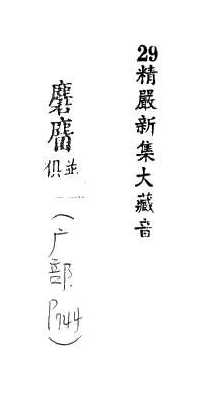 29精嚴新集大藏音
並俱
(广部 P744)